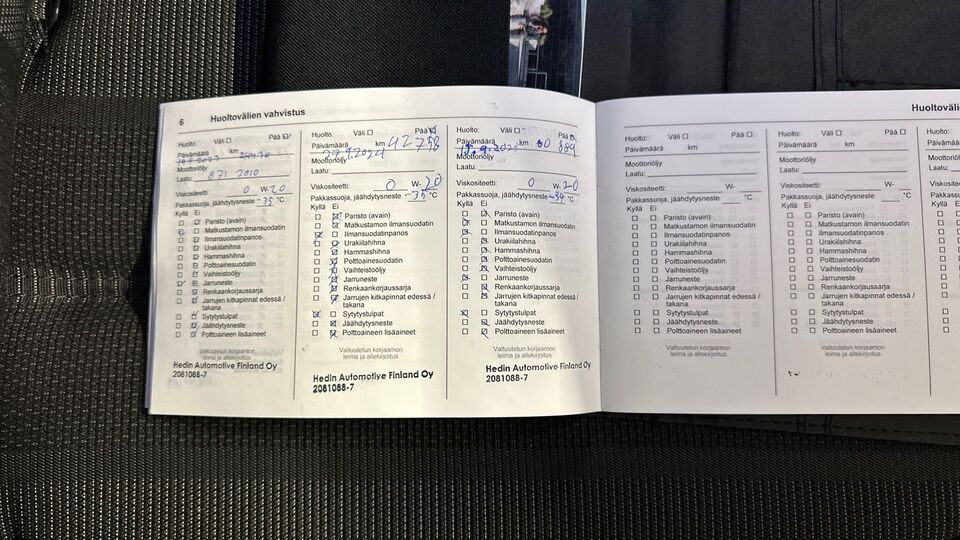 6 Huoltovälien vahvistus
Huolto: Väli ☐ Pää ☑
Päivämäärä km
Moottoriöljy
Laatu: B71 2010
Viskositeetti: 0 W-20
Pakkassuoja, jäähdytysneste -35 °C
Kyllä Ei
Paristo (avain)
Matkustamon ilmansuodatin
Ilmansuodatinpanos
Urakiilahihna
Hammashihna
Polttoainesuodatin
Vaihteistoöljy
Jarruneste
Renkaankorjaussarja
Jarrujen kitkapinnat edessä /
takana
Sytytystulpat
Jäähdytysneste
Polttoaineen lisäaineet
Valtuutetun korjaamon
leima ja allekirjoitus
Hedin Automotive Finland Oy
2081088-7
Huolto: Väli ☐ Pää ☑
Päivämäärä km 42 758
27.9.2024
Moottoriöljy
Laatu:
Viskositeetti: 0 W-20
Pakkassuoja, jäähdytysneste -35 °C
Kyllä Ei
Paristo (avain)
Matkustamon ilmansuodatin
Ilmansuodatinpanos
Urakiilahihna
Hammashihna
Polttoainesuodatin
Vaihteistoöljy
Jarruneste
Renkaankorjaussarja
Jarrujen kitkapinnat edessä /
takana
Sytytystulpat
Jäähdytysneste
Polttoaineen lisäaineet
Valtuutetun korjaamon
leima ja allekirjoitus
Hedin Automotive Finland Oy
2081088-7
Huolto: Väli ☐ Pää ☑
Päivämäärä km 60 889
Moottoriöljy
Laatu:
Viskositeetti: 0 W-20
Pakkassuoja, jäähdytysneste -34 °C
Kyllä Ei
Paristo (avain)
Matkustamon ilmansuodatin
Ilmansuodatinpanos
Urakiilahihna
Hammashihna
Polttoainesuodatin
Vaihteistoöljy
Jarruneste
Renkaankorjaussarja
Jarrujen kitkapinnat edessä /
takana
Sytytystulpat
Jäähdytysneste
Polttoaineen lisäaineet
Valtuutetun korjaamon
leima ja allekirjoitus
Hedin Automotive Finland Oy
2081088-7
Huoltoväli
Huolto: Väli ☐ Pää ☐
Päivämäärä km
Moottoriöljy
Laatu:
Viskositeetti: W-
Pakkassuoja, jäähdytysneste °C
Kyllä Ei
Paristo (avain)
Matkustamon ilmansuodatin
Ilmansuodatinpanos
Urakiilahihna
Hammashihna
Polttoainesuodatin
Vaihteistoöljy
Jarruneste
Renkaankorjaussarja
Jarrujen kitkapinnat edessä /
takana
Sytytystulpat
Jäähdytysneste
Polttoaineen lisäaineet
Valtuutetun korjaamon
leima ja allekirjoitus
Huolto: Väli ☐ Pää ☐
Päivämäärä km
Moottoriöljy
Laatu:
Viskositeetti: W-
Pakkassuoja, jäähdytysneste °C
Kyllä Ei
Paristo (avain)
Matkustamon ilmansuodatin
Ilmansuodatinpanos
Urakiilahihna
Hammashihna
Polttoainesuodatin
Vaihteistoöljy
Jarruneste
Renkaankorjaussarja
Jarrujen kitkapinnat edessä /
takana
Sytytystulpat
Jäähdytysneste
Polttoaineen lisäaineet
Valtuutetun korjaamon
leima ja allekirjoitus
Huolto:
Päivämä
Moottori
Laatu:
Viskosit
Pakkas
Kyllä Ei